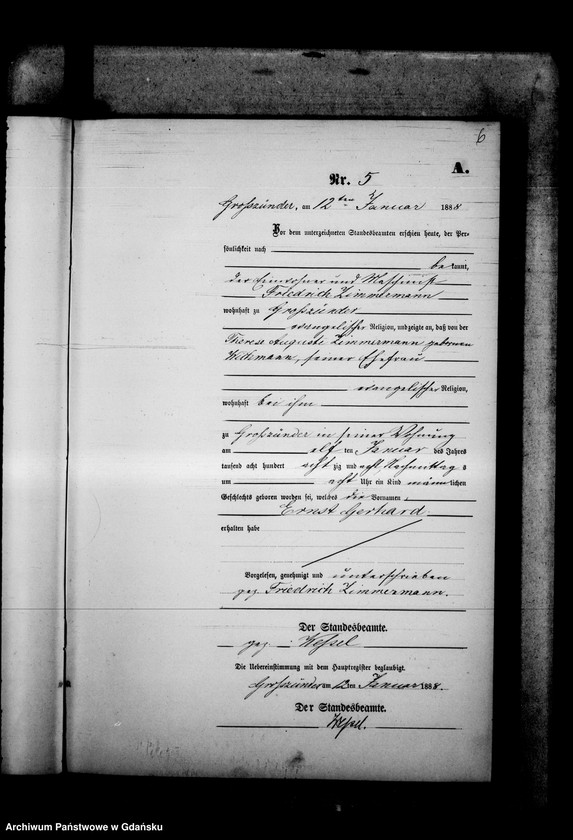 6
A.
Nr. 5
Großzünder, am 12ten Januar 1888
Vor dem unterzeichneten Standesbeamten erschien heute, der Per-
sönlichkeit nach
bekannt,
der Einwohner und Maschinist
Friedrich Zimmermann
wohnhaft zu Großzünder
evangelischer Religion, und zeigte an, daß von der
Therese Auguste Zimmermann geborenen
seiner Ehefrau
evangelischer Religion,
wohnhaft bei ihm
zu Großzünder in seiner Wohnung
am elf ten Januar des Jahres
tausend acht hundert acht zig und acht, Nachmittags
um acht Uhr ein Kind männlichen
Geschlechts geboren worden sei, welches die Vornamen
Ernst Gerhard
erhalten habe
Vorgelesen, genehmigt und unterschrieben
gez. Friedrich Zimmermann.
Der Standesbeamte.
gez. Wessel
Die Uebereinstimmung mit dem Hauptregister beglaubigt.
Großzünder am 12ten Januar 1888.
Der Standesbeamte.
Wessel.
Archiwum Państwowe w Gdańsku